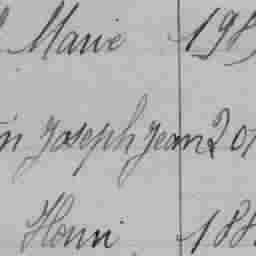 Marie 198
Joseph Jean 20
Henri 188